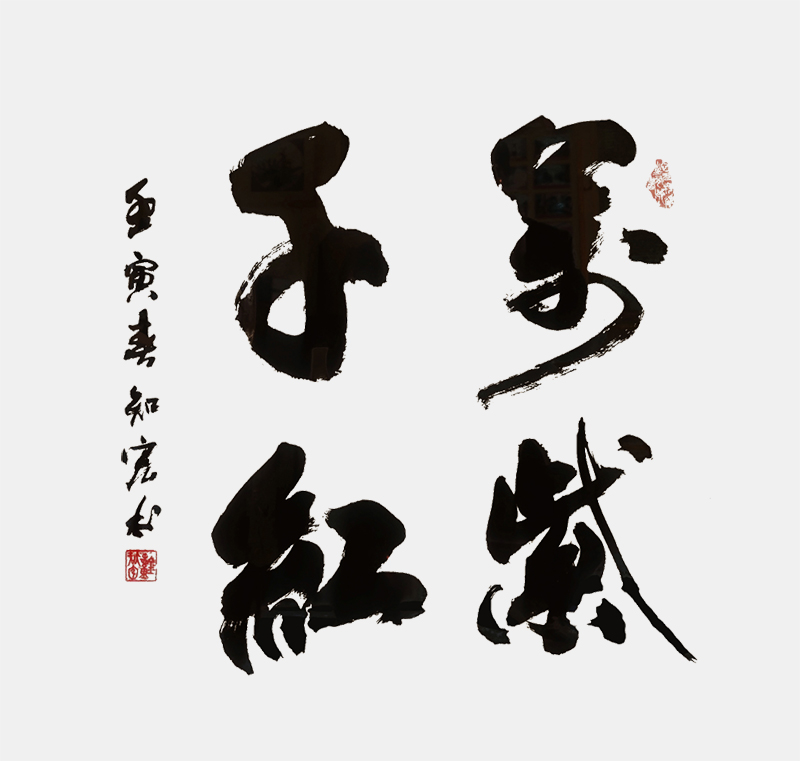 萬紫
千紅
壬寅春知宏书